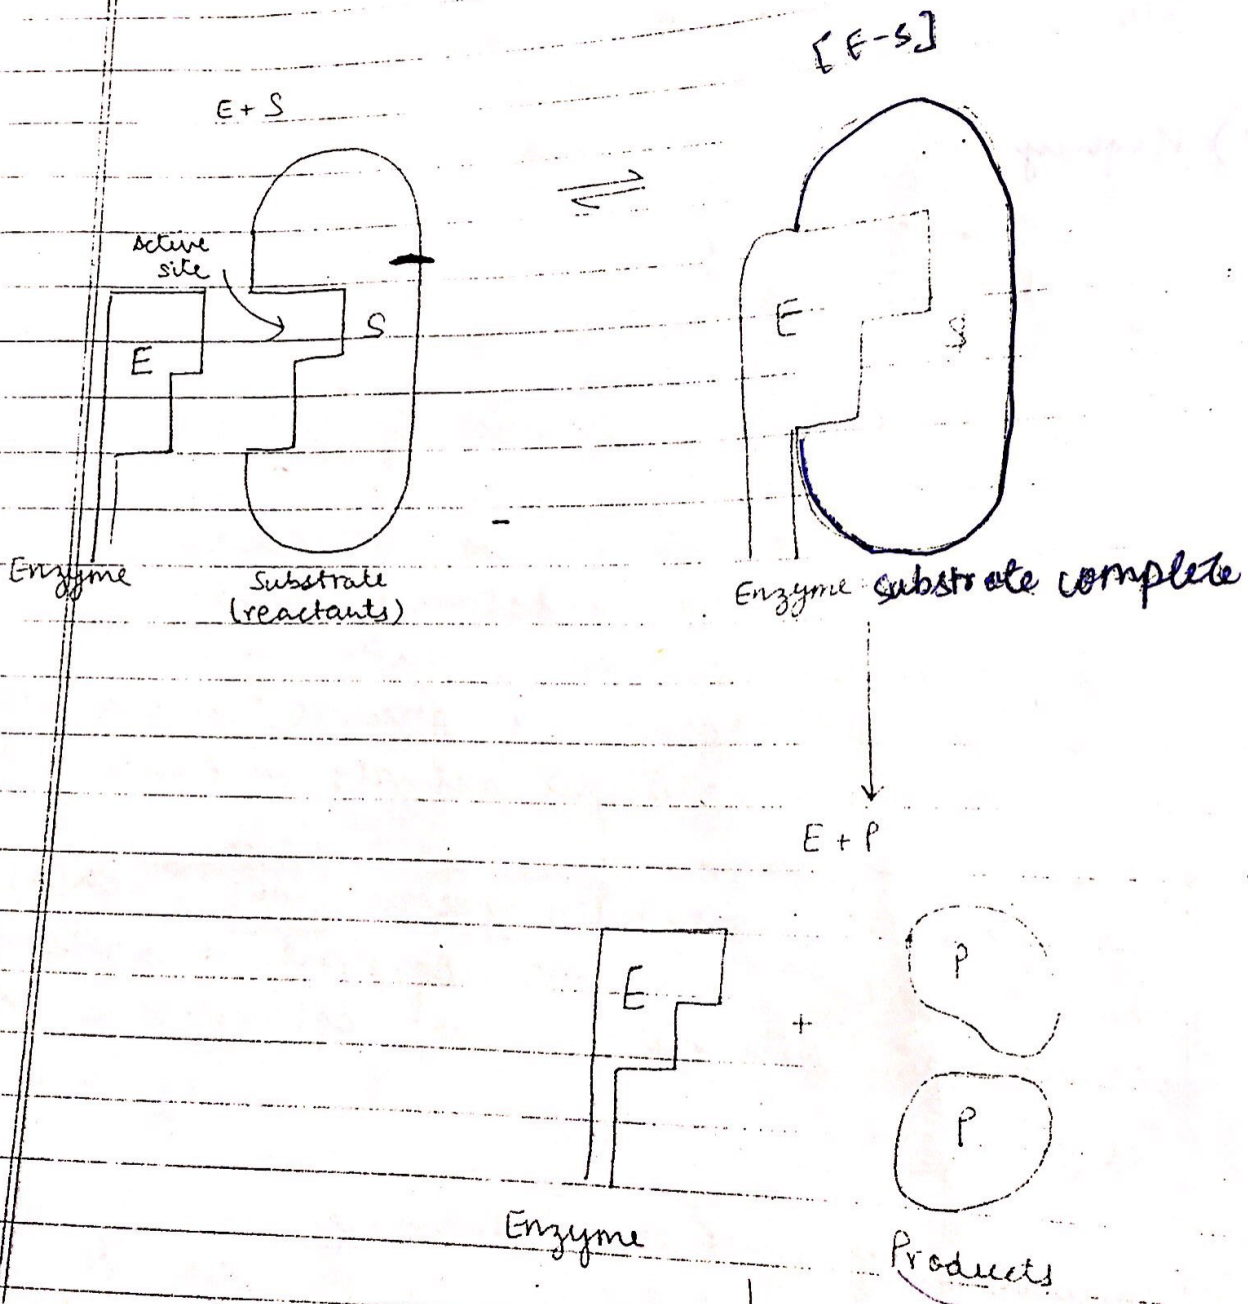 [E-S]
E + S
⇌
Active
site
E
S
E
S
Enzyme
Substrate
(reactants)
Enzyme substrate complete
E + P
E
+
P
P
Enzyme
Products